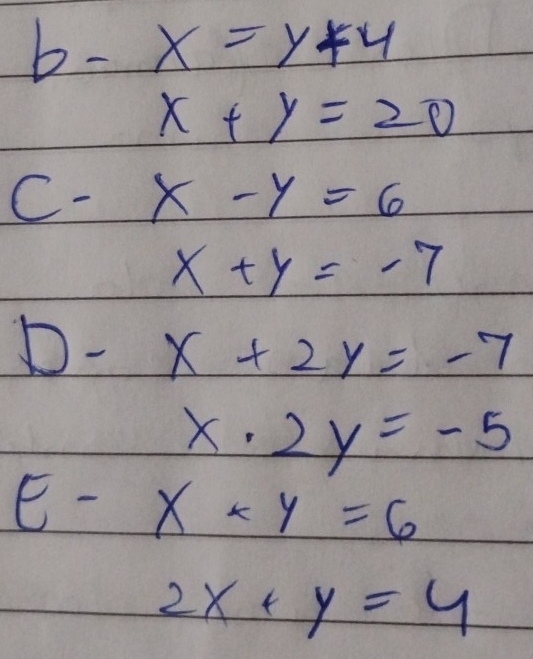 b- x = y + 4
x + y = 20
C- x - y = 6
x + y = -7
D- x + 2y = -7
x . 2y = -5
E- x + y = 6
2x + y = 4